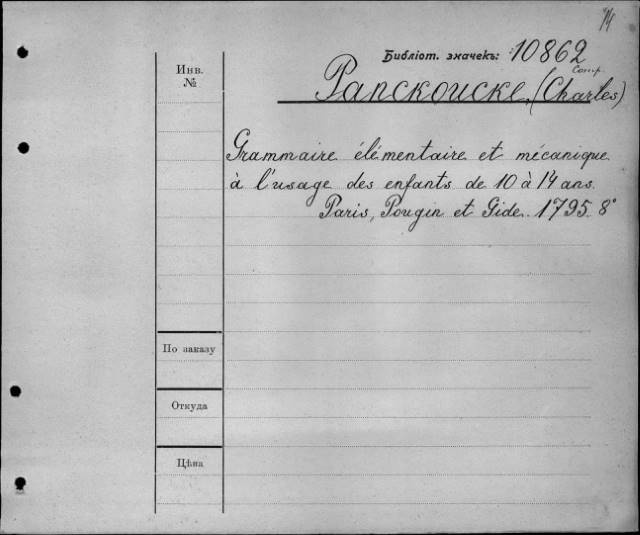 14
Библіот. значекъ: 10862
Comp.
Panckoucke, (Charles)
Инв.
№
Grammaire élémentaire et mécanique
à l'usage des enfants de 10 à 14 ans.
Paris, Pougin et Gide. 1795. 8°
По заказу
Откуда
Цѣна